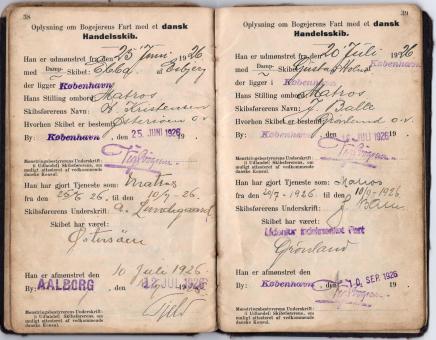 38
Oplysning om Bogejerens Fart med et dansk
Handelsskib.
Han er udmønstret fra den 25 Juni 1926
med Damp- Skibet: af Esbjerg
der ligger i København
Hans Stilling ombord er: Matros
Skibsførerens Navn: Kristensen
Hvorhen Skibet er bestemt: Østersøen o. v.
By: København, den 25. JUNI 1926 19
Mønstringsbestyrerens Underskrift:
i Udlandet: Skibsførerens, om
muligt attesteret af vedkommende
danske Konsul.
Han har gjort Tjeneste som: Matros
fra den 25/6 26 til den 10/7 26.
Skibsførerens Underskrift:
Skibet har været:
Østersøen
Han er afmønstret den 10 Juli 1926
By: AALBORG, den 12 JUL 1926
Mønstringsbestyrerens Underskrift:
i Udlandet: Skibsførerens, om
muligt attesteret af vedkommende
danske Konsul.
39
Oplysning om Bogejerens Fart med et dansk
Handelsskib.
Han er udmønstret fra den 20 Juli 1926
med Damp- Skibet: Gustav Holm af København
der ligger i København
Hans Stilling ombord er: Matros
Skibsførerens Navn: J. Balle
Hvorhen Skibet er bestemt: Grønland o. v.
By: København, den JULI 1926 19
Mønstringsbestyrerens Underskrift:
i Udlandet: Skibsførerens, om
muligt attesteret af vedkommende
danske Konsul.
Han har gjort Tjeneste som: Matros
fra den 20/7 - 1926 til den 10/9 - 1926
Skibsførerens Underskrift: J. Balle
Skibet har været:
Udenfor indelukket Fart
Grønland
Han er afmønstret den
By: København, den 10. SEP. 1926 19
Mønstringsbestyrerens Underskrift:
i Udlandet: Skibsførerens, om
muligt attesteret af vedkommende
danske Konsul.